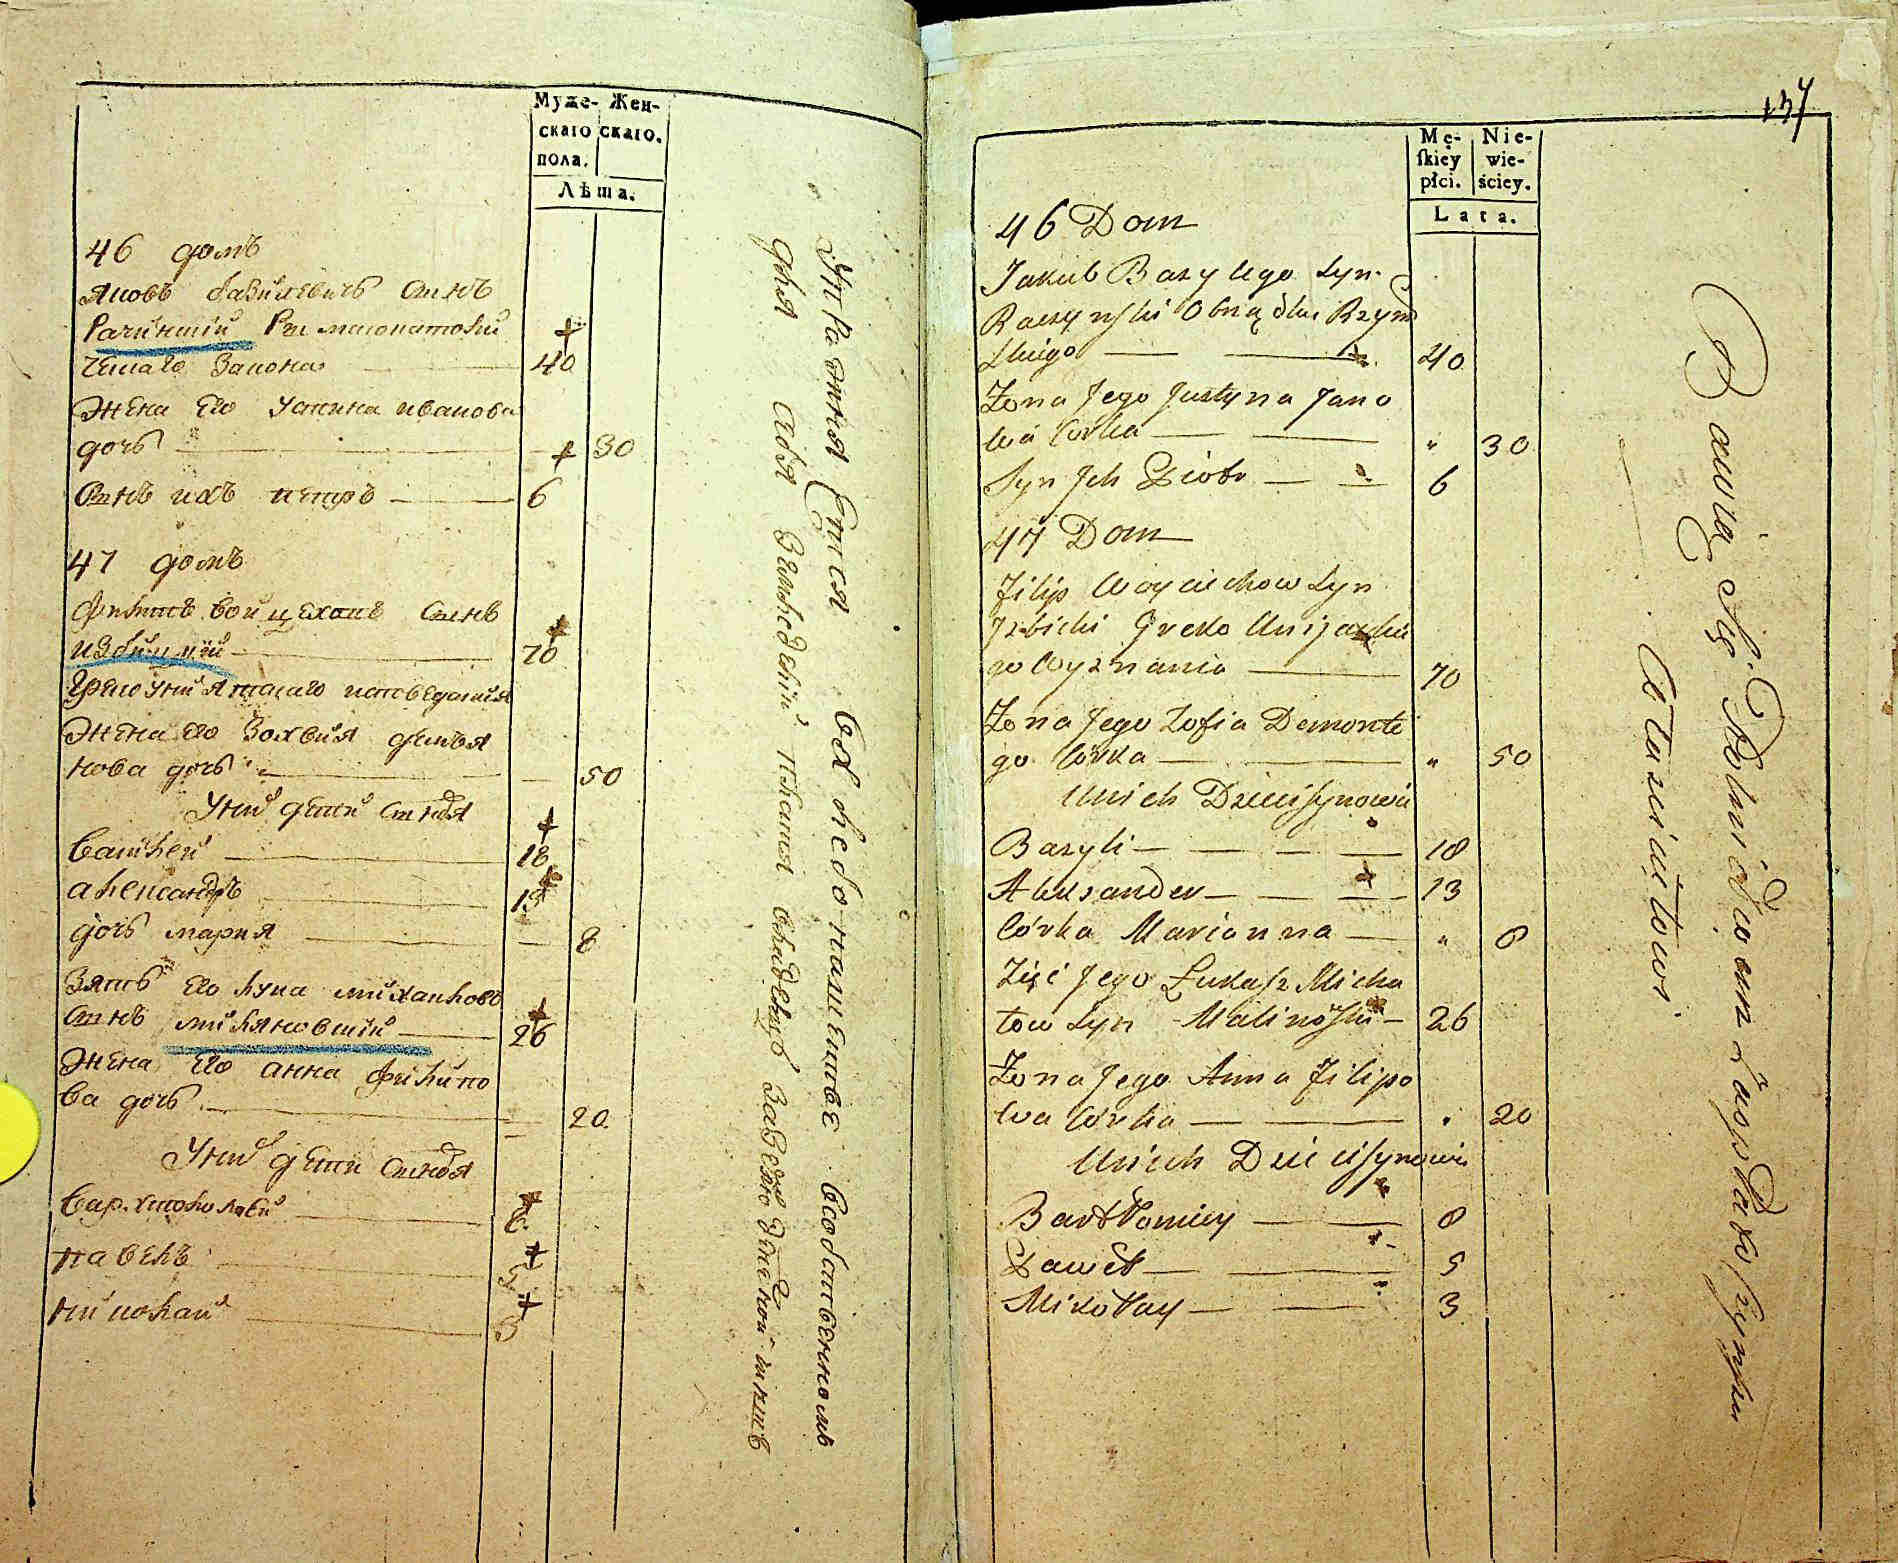 Муже- Жен-
скаго скаго.
пола.
Лѣта.
46 домъ
Яковъ базилевичъ сынъ
Рачинский Римокатоли
ческаго закона 40
Жена Его Устина иванова
дочь 30
Сынъ ихъ петръ 6
47 домъ
Филипъ войцеховъ сынъ
избицкий 70
Греко униятскаго исповедания
Жена Его Зофия демья
нова дочь 50
У них дети сыновя
Василей 18
александръ 13
дочь мария 8
Зять Его лука михайловъ
сынъ малиновский 26
Жена Его анна филипо
ва дочь 20
У них дети сыновя
варфоломей 8
павелъ 5
николай 3
Упражняется
для себя
137
Mę- Nie-
skiey wie-
płci. ściey.
Lata.
46 Dom
Jakub Bazylego Syn
Raczynski Obrządku Rzym
Skiego 40
Zona Jego Justyna Jano
wa Corka " 30
Syn Jch Piotr 6
47 Dom
Filip Woyciechow Syn
Jzbicki Greko Unijackie
go Wyznania 70
Zona Jego Zofia Demonte
go Córka " 50
Unich Dzieci Synowie
Bazyli 18
Alexander 13
Córka Marianna " 8
Zięć Jego Łukasz Micha
łow Syn Malinoski 26
Zona Jego Anna Filipo
wa Córka " 20
Unich Dzieci Synowie
Bartłomiey 8
Paweł 5
Mikołay 3
Bawią Się Rolnictwem